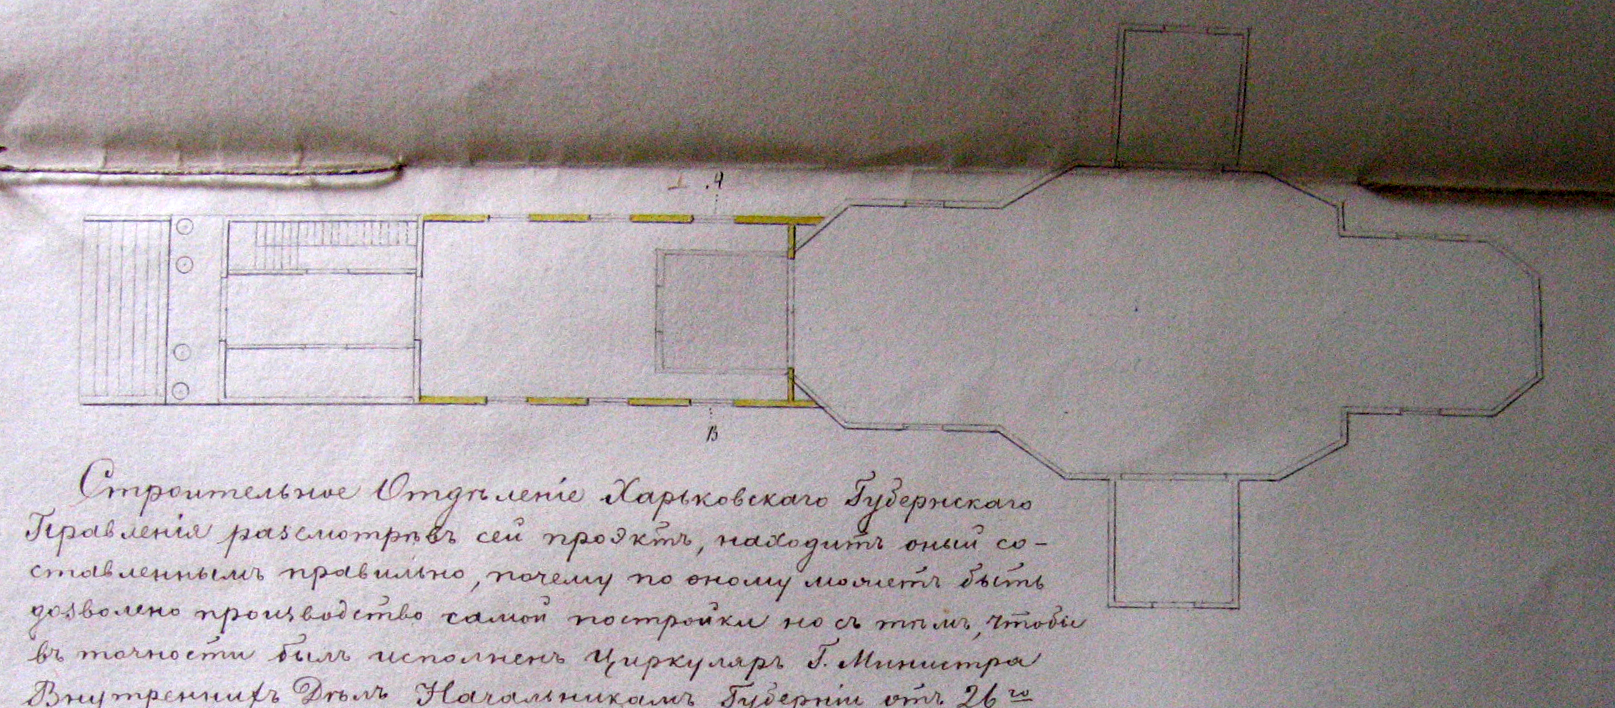 А
В
Строительное Отдѣленіе Харьковскаго Губернскаго
Правленія разсмотрѣвъ сей проэктъ, находитъ оный со-
ставленнымъ правильно, почему по оному можетъ быть
дозволено производство самой постройки но съ тѣмъ, чтобы
въ точности былъ исполненъ Циркуляръ Г. Министра
Внутреннихъ Дѣлъ Начальникамъ Губерніи отъ 26го